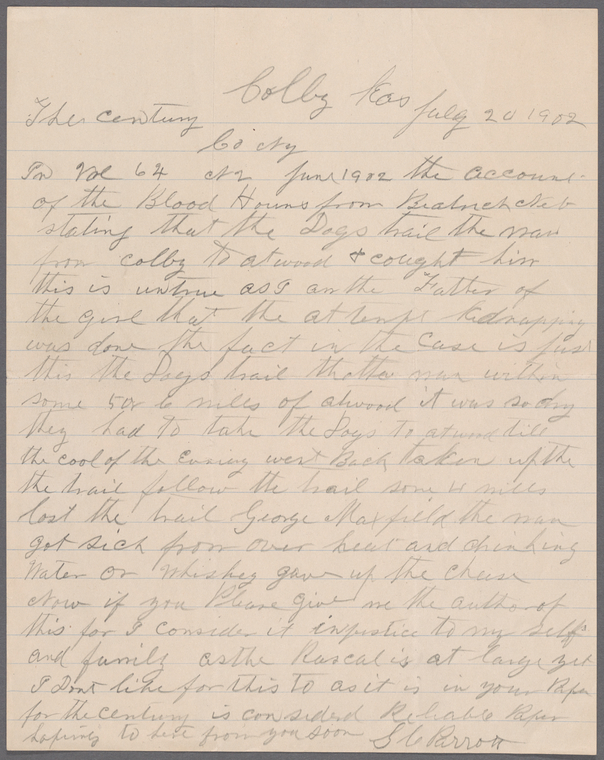 Colby Kas July 20 1902
The century
Co Ny
In Vol 64 N2 June 1902 the account
of the Blood Houns from Beatrich Neb
stating that the Dogs trail the man
from colby to atwood & cought him
this is untrue as I am the Father of
the girl that the attempt Kednapping
was done the fact in the Case is just
this the Dogs trail the man within
some 5 or 6 miles of atwood it was so dry
they had to take the Dogs to atwood till
the cool of the Evning went Back taken up the
the trail follow the trail some 4 miles
lost the trail George Maxfield the man
got sick from over heat and drinking
Water or Whiskey gave up the chese
Now if you Please give me the author of
this for I consider it injustice to my self
and family as the Rascal is at large yet
I Dont like for this to as it is in your Paper
for the century is considerd Reliable Paper
hoping to here from you soon G C Parrott